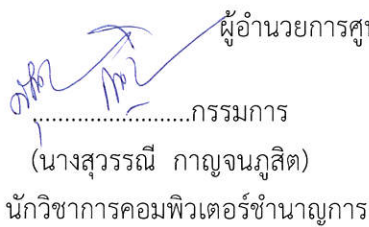 ผู้อำนวยการศู
........................กรรมการ
(นางสุวรรณี กาญจนภูสิต)
นักวิชาการคอมพิวเตอร์ชำนาญการ